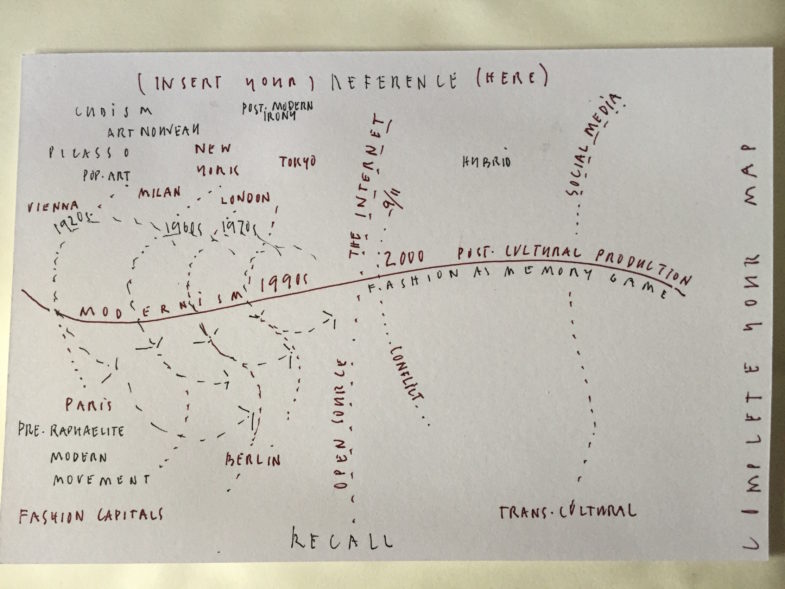 (INSERT YOUR) REFERENCE (HERE)
CUBISM
POST-MODERN
IRONY
ART NOUVEAU
PICASSO
NEW
YORK
TOKYO
HYBRID
POP-ART
MILAN
LONDON
VIENNA
1920s
1960s
1970s
THE INTERNET
9/11
SOCIAL MEDIA
2000 POST-CULTURAL PRODUCTION
FASHION AS MEMORY GAME
MODERNISM 1990s
PARIS
PRE-RAPHAELITE
MODERN
MOVEMENT
BERLIN
OPEN SOURCE
CONFLICT...
FASHION CAPITALS
TRANS-CULTURAL
RECALL
COMPLETE YOUR MAP